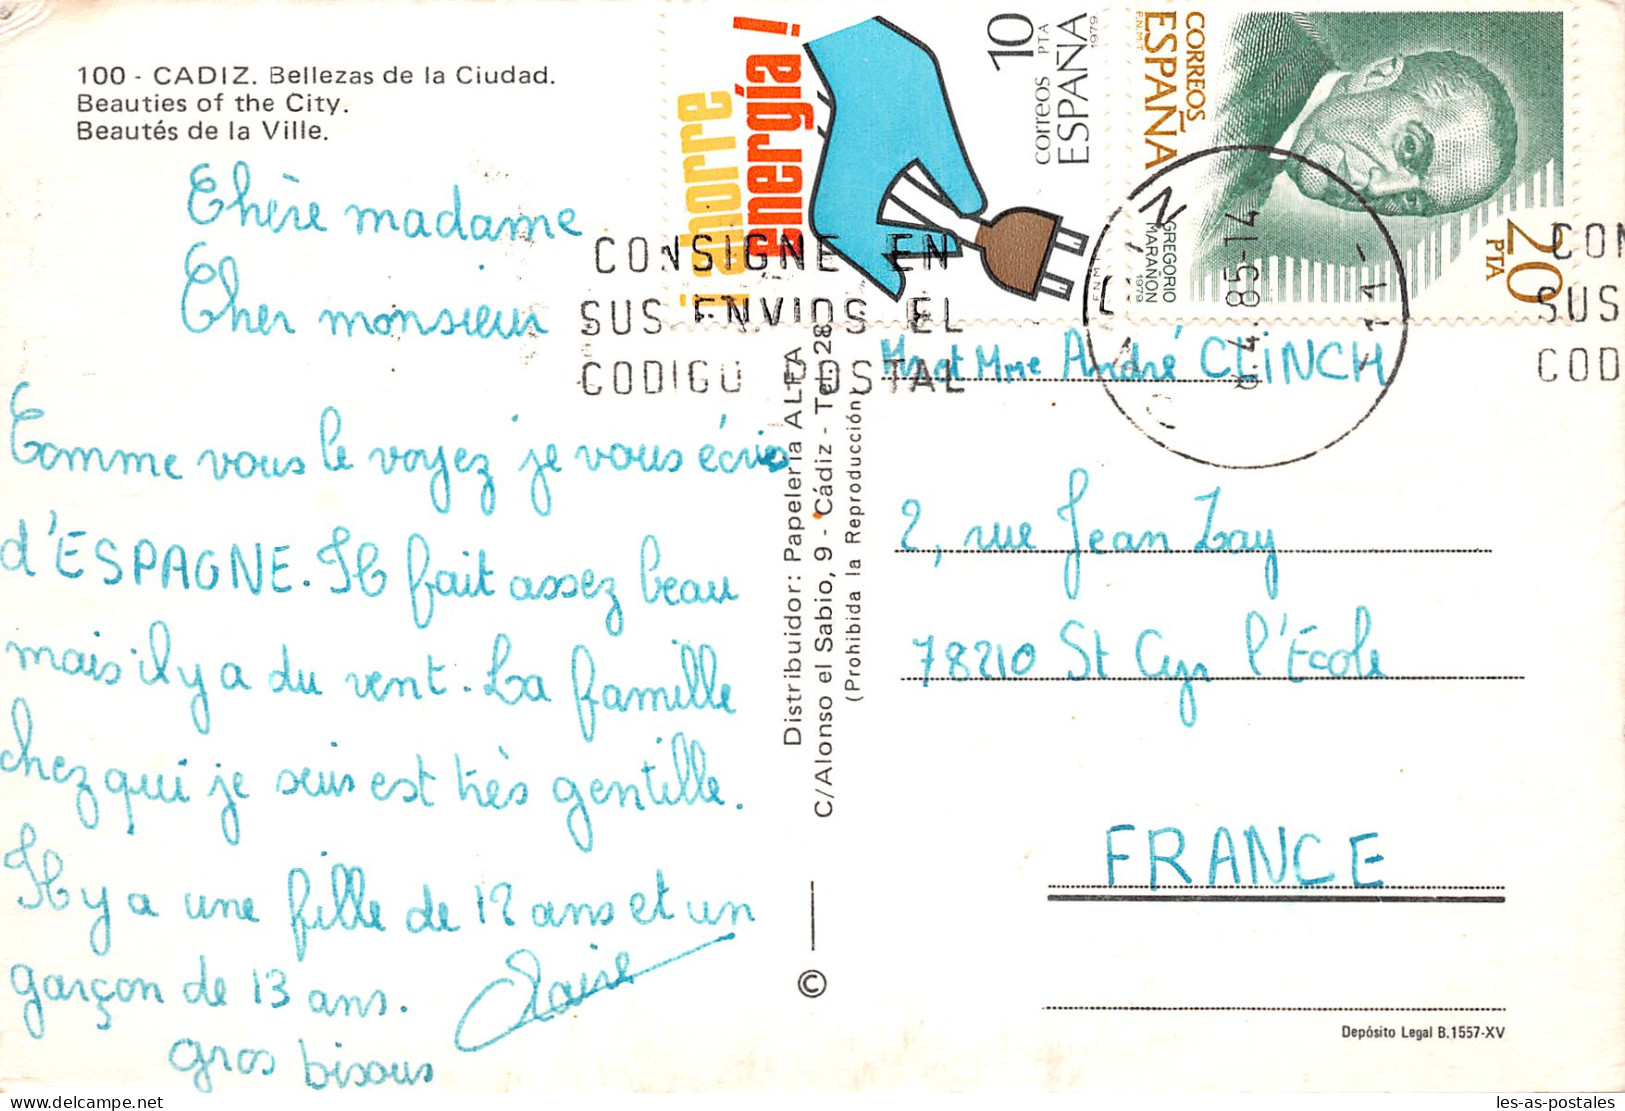 100 - CADIZ. Bellezas de la Ciudad.
Beauties of the City.
Beautés de la Ville.
Chère madame
Cher monsieur
Comme vous le voyez je vous écris
d'ESPAGNE. Il fait assez beau
mais il y a du vent. La famille
chez qui je suis est très gentille.
Il y a une fille de 12 ans et un
garçon de 13 ans.
Claire
gros bisous
Distribuidor: Papelería ALFA
C/Alonso el Sabio, 9 - Cádiz - Tel. 28
(Prohibida la Reproducción)
©
¡ahorre
energía!
10
PTA
correos
ESPAÑA
1979
F.N.M.T.
CORREOS
ESPAÑA
F.N.M.T
20
PTA
GREGORIO
MARAÑON
1979
CONSIGNE EN
SUS ENVIOS EL
CODIGO POSTAL
4.85-14
CON
SUS
COD
Mr et Mme André CLINCH
2, rue Jean Zay
78210 St Cyr l'Ecole
FRANCE
Depósito Legal B.1557-XV
les-as-postales
delcampe.net